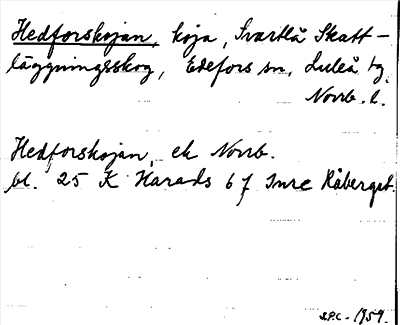 Hedforskojan, koja, Svartlå Skatt-
läggningsskog, Edefors sn, Luleå tg.
Norrb. l.
Hedforskojan, ek Norrb.
bl. 25 K Harads 6 f Inre Råberget.
1959.